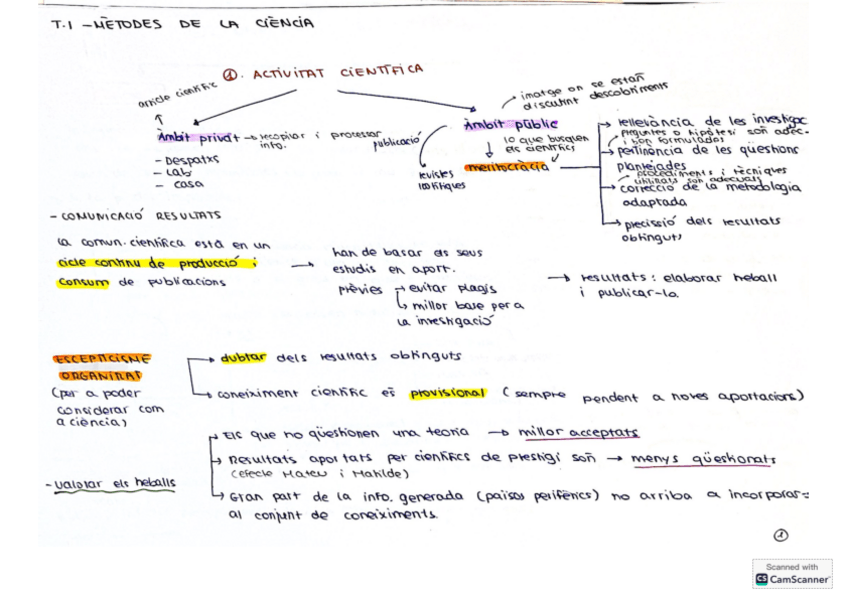 T.1 - MÈTODES DE LA CIÈNCIA
1. ACTIVITAT CIENTÍFICA
article científic
Àmbit privat → recopilar i processar
info.
- Despatxs
- Lab
- casa
publicació
revistes
científiques
Àmbit públic
imatge on se estàn
discutint descobriments
lo que busquen
els científics
meritocràcia
→ rellevància de les investigac
preguntes o hipòtesi són adec.
i ben formulades
→ pertinència de les qüestions
plantejades
procediments i tècniques
utilitzats són adequats
→ correcció de la metodologia
adaptada
→ precissió dels resultats
obtinguts
- COMUNICACIÓ RESULTATS
La comun. científica està en un
cicle continu de producció i
consum de publicacions
→ han de basar els seus
estudis en aport.
prèvies → evitar plagis
↳ millor base per a
la investigació
→ resultats: elaborar treball
i publicar-lo.
ESCEPTICISME
ORGANITZAT
(per a poder
considerar com
a ciència)
→ dubtar dels resultats obtinguts
→ coneiximent científic es provisional (sempre pendent a noves aportacions)
- Valorar els treballs
→ Els que no qüestionen una teoria → millor acceptats
→ Resultats aportats per científics de prestigi són → menys qüestionats
(efecte Mateu i Matilde)
→ Gran part de la info. generada (països perifèrics) no arriba a incorporar=
al conjunt de coneiximents.
1
Scanned with
CS CamScanner